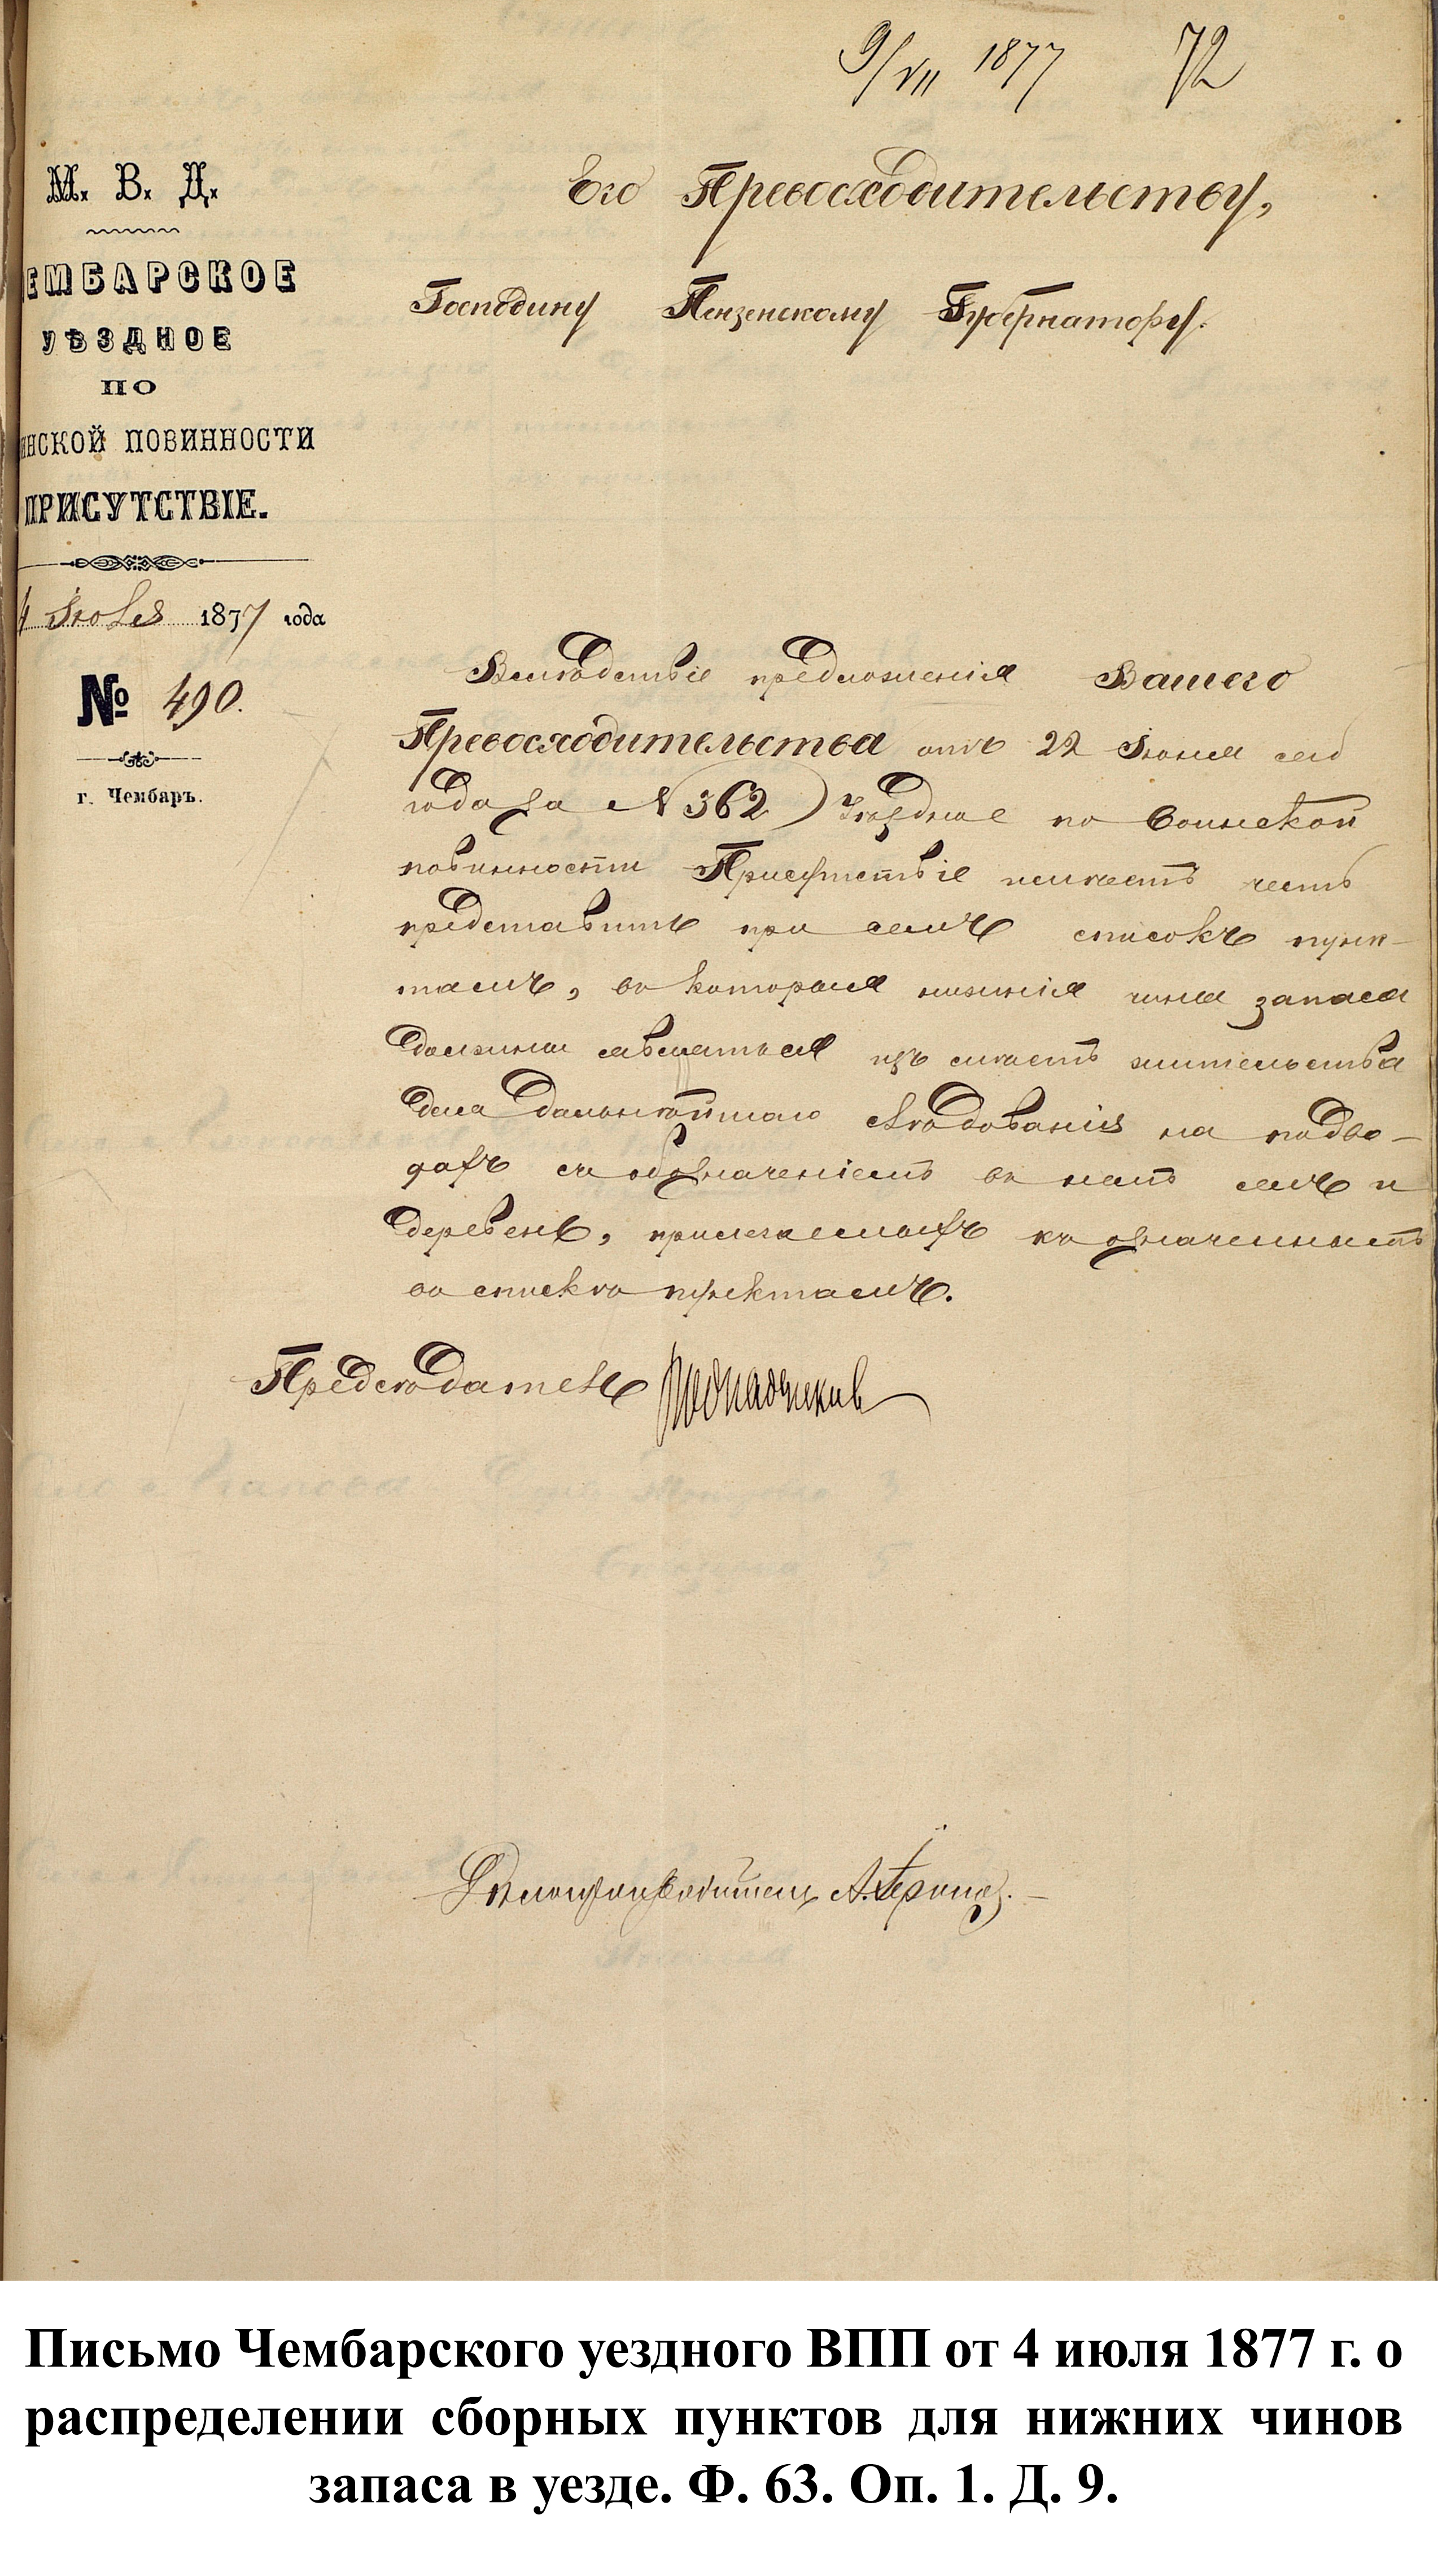 9/VII 1877 72
М. В. Д.
ЕМБАРСКОЕ
УѢЗДНОЕ
ПО
ИНСКОЙ ПОВИННОСТИ
ПРИСУТСТВІЕ.
4 Іюля 1877 года
№ 490.
г. Чембаръ.
Его Превосходительству,
Господину Пензенскому Губернатору.
Вслѣдствіе предложенія Вашего
Превосходительства отъ 22 Іюня сего
года за № 362 Уѣздное по воинской
повинности Присутствіе имѣетъ честь
представить при семъ списокъ пунк-
тамъ, въ которые нижніе чины запаса
должны являться изъ мѣстъ жительства
для дальнѣйшаго слѣдованія на подво-
дахъ съ обозначеніемъ въ немъ селъ и
деревень, прилегаемыхъ къ означеннымъ
въ спискѣ пунктамъ.
Предсѣдатель
Дѣлопроизводитель А.
Письмо Чембарского уездного ВПП от 4 июля 1877 г. о
распределении сборных пунктов для нижних чинов
запаса в уезде. Ф. 63. Оп. 1. Д. 9.